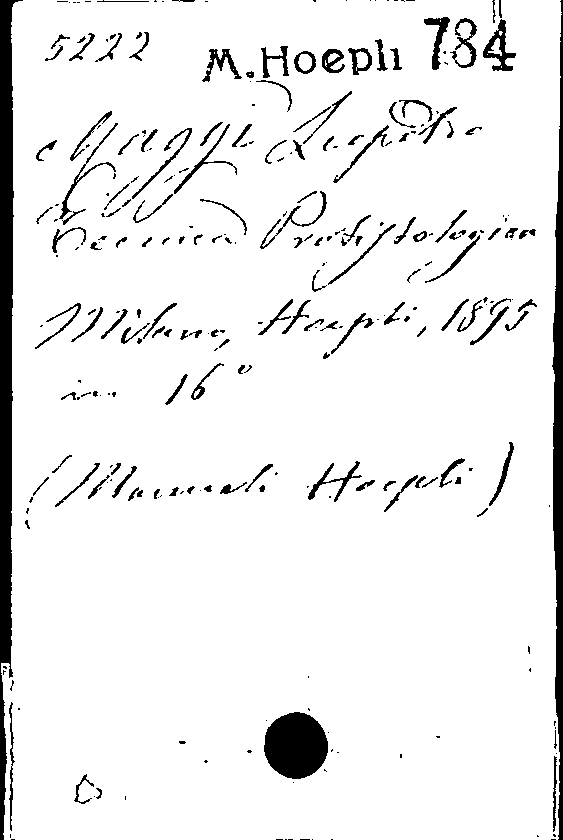 5222 M. Hoepli 784
Maggi Leopoldo
Tecnica Protistologica
Milano, Hoepli, 1895
in 16°
(Manuali Hoepli)